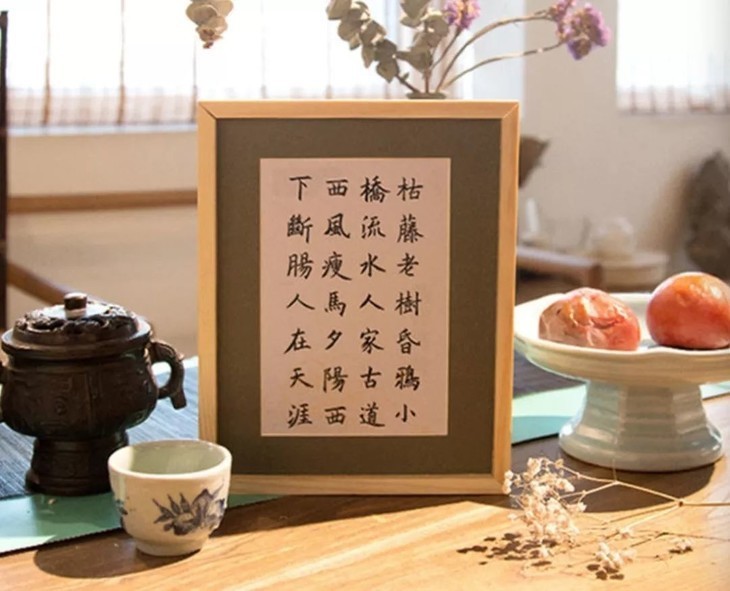 枯藤老樹昏鴉小
橋流水人家古道
西風瘦馬夕陽西
下斷腸人在天涯